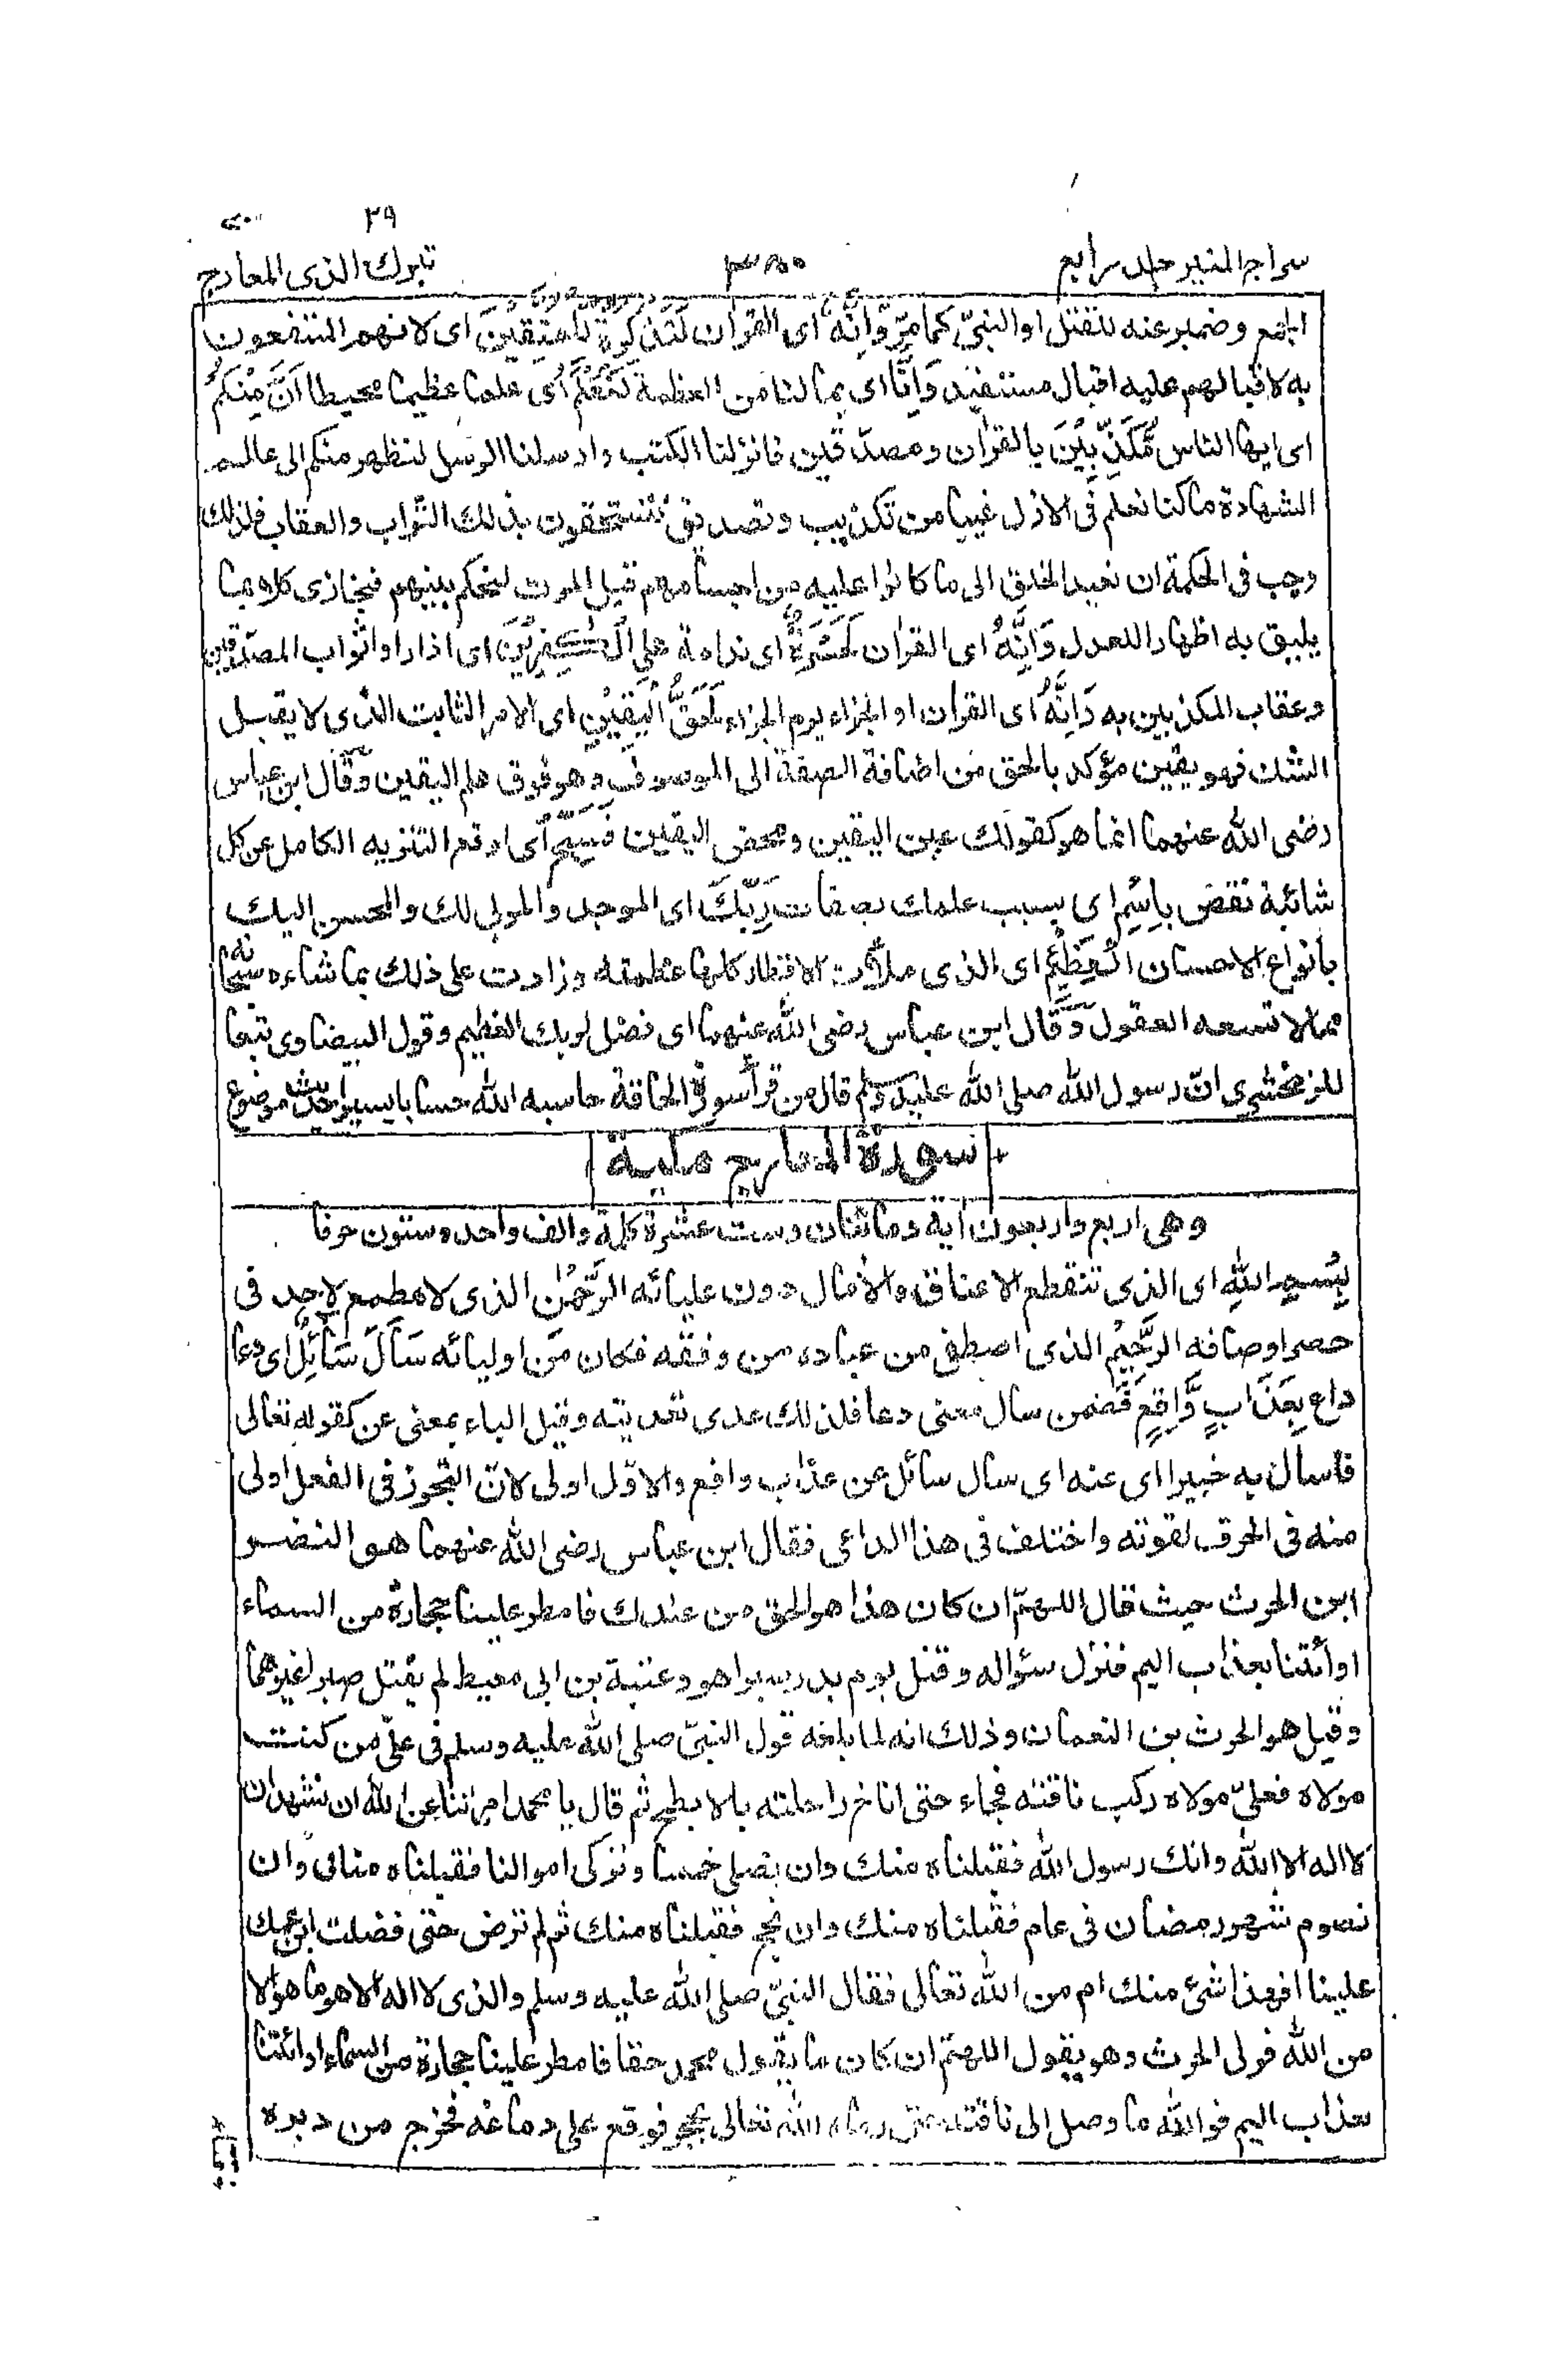 ٢٩
سراج المنير جلد رابع
٣٨٠
تبرك الذى المعارج
الجمع وضمير عنه للقتل او النبىّ كما مرّ وَاِنَّهٗ اى القرٰان لَتَذْكِرَةٌ لِّلْمُتَّقِيْنَ اى لانهم المنتفعون
به لاقبالهم عليه اقبال مستفيد وَاِنَّا اى بما لنا من العظمة لَنَعْلَمُ اى علما عظيما محيطا اَنَّ مِنْكُمْ
اى ايها الناس مُّكَذِّبِيْنَ بالقرٰان ومصدّقين فانزلنا الكتب وارسلنا الرسل لنظهر منكم الى عالم
الشهادة ما كنا نعلم فى الازل غيبا من تكذيب وتصديق فتستحقون بذلك الثواب والعقاب فلذلك
وجب فى الحكمة ان نعيد الخلق الى ما كانوا عليه من اجسامهم قبل الموت لنحكم بينهم فنجازى كلا بما
يليق به اظهارا للعدل وَاِنَّهٗ اى القرٰان لَحَسْرَةٌ اى ندامة عَلَى الْكٰفِرِيْنَ اى اذا راوا ثواب المصدّقين
وعقاب المكذبين به وَاِنَّهٗ اى القرٰان او الجزاء يوم الجزاء لَحَقُّ الْيَقِيْنِ اى الامر الثابت الذى لا يقبل
الشك فهو يقين مؤكد بالحق من اضافة الصفة الى الموصوف وهو فوق علم اليقين وقال ابن عباس
رضى الله عنهما انما هو كقولك عين اليقين ومحض اليقين فَسَبِّحْ اى اوقع التنزيه الكامل عن كل
شائبة نقص بِاسْمِ اى بسبب علمك بصفات رَبِّكَ اى الموجد والمولى لك والمحسن اليك
بانواع الاحسان الْعَظِيْمِ اى الذى ملأت الاقطار كلها عظمته وزادت على ذلك بما شاءه سبحانه
مما لا تسعه العقول وقال ابن عباس رضى الله عنهما اى فصل لربك العظيم وقول البيضاوى تبعا
للزمخشرى انّ رسول الله صلى الله عليه وسلم قال من قرأ سورة الحاقة حاسبه الله حسابا يسيرا حديث موضوع
سورة المعارج مكية
وهى اربع واربعون اٰية ومائتان وست عشرة كلمة والف واحد وستون حرفا
بِسْمِ اللّٰهِ اى الذى تنقطع الاعناق والاٰمال دون عليائه الرَّحْمٰنِ الذى لا مطمع لاحد فى
حصر اوصافه الرَّحِيْمِ الذى اصطفى من عباده من وفقه فكان من اوليائه سَاَلَ سَآئِلٌ اى دعا
داع بِعَذَابٍ وَّاقِعٍ فضمن سال معنى دعا فلذلك عدى تعديته وقيل الباء بمعنى عن كقوله تعالى
فاسال به خبيرا اى عنه اى سال سائل عن عذاب واقع والاوّل اولى لانّ التجوز فى الفعل اولى
منه فى الحرف لقوته واختلف فى هذا الداعى فقال ابن عباس رضى الله عنهما هو النضر
ابن الحرث حيث قال اللهمّ ان كان هذا هو الحق من عندك فامطر علينا حجارة من السماء
او ائتنا بعذاب اليم فنزل سؤاله وقتل يوم بدر صبرا هو وعتبة بن ابى معيط لم يقتل صبرا غيرهما
وقيل هو الحرث بن النعمان وذلك انه لما بلغه قول النبىّ صلى الله عليه وسلم فى علىّ من كنت
مولاه فعلىّ مولاه ركب ناقته فجاء حتى اناخ راحلته بالابطح ثم قال يا محمد امرتنا عن الله ان نشهد ان
لا اله الا الله وانك رسول الله فقبلناه منك وان نصلى خمسا ونزكى اموالنا فقبلناه منك وان
نصوم شهر رمضان فى عام فقبلناه منك وان نحج فقبلناه منك ثم لم ترض حتى فضلت ابن عمك
علينا افهذا شئ منك ام من الله تعالى فقال النبىّ صلى الله عليه وسلم والذى لا اله الا هو ما هو الا
من الله فولى الحرث وهو يقول اللهمّ ان كان ما يقول محمد حقا فامطر علينا حجارة من السماء او ائتنا
بعذاب اليم فوالله ما وصل الى ناقته حتى رماه الله تعالى بحجر فوقع على دماغه فخرج من دبره